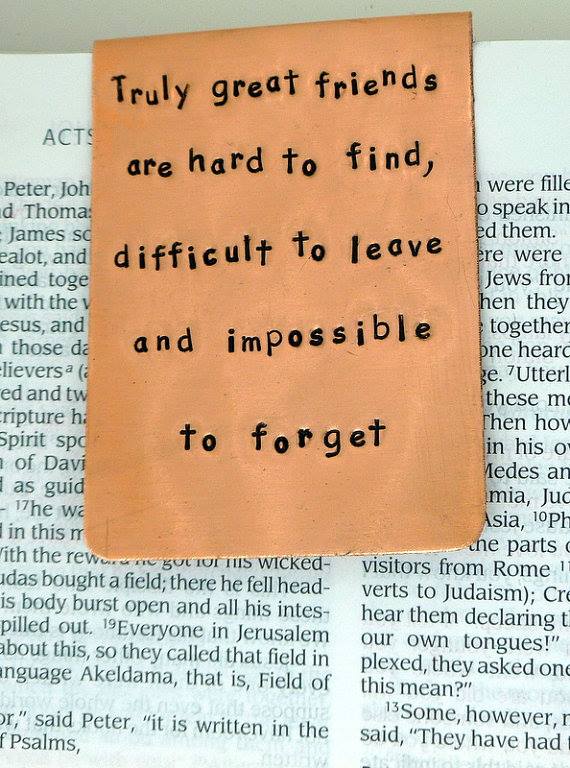 Truly great friends
are hard to find,
difficult to leave
and impossible
to forget
ACTS
Peter,
James
and
with the
esus, and
those
ed and
Spirit
of
as
17he
in this
With the
udas bought a field; there he fell head-
is body burst open and all his intes-
pilled out. 19Everyone in Jerusalem
about this, so they called that field in
anguage Akeldama, that is, Field of
or,” said Peter, “it is written in the
f Psalms,
were
speak in
them.
were
Jews
they
together
heard
7
these
Then how
in his
Medes
Asia, 10
the parts
visitors from Rome
verts to Judaism);
hear them declaring
our own tongues!”
plexed, they asked one
this mean?”
13Some, however,
said, “They have had